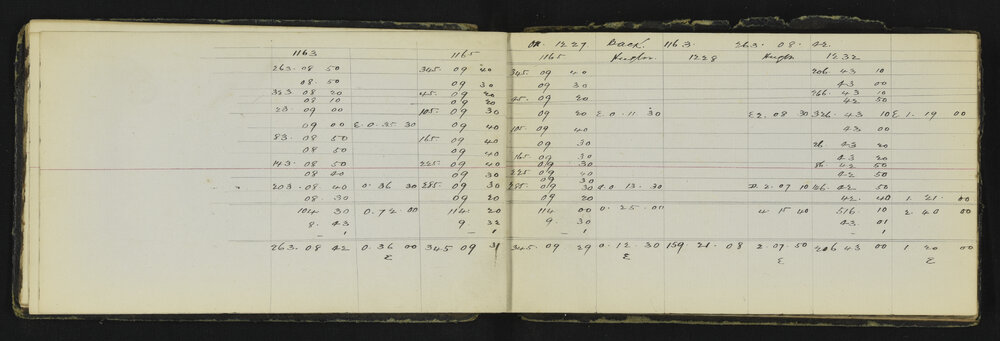 On. 1227 Back. 1163 263. 08. 42.
1163 1165 1165 Height. 1228 Height 1232
263. 08 50 345. 09 40 345. 09 40 206. 43 10
08. 50 09 30 09 30 43 00
323 08 20 45. 09 20 45. 09 20 266. 43 10
08 10 09 20 42 50
23. 09 00 105. 09 30 09 20 E. 0. 11. 30 E2. 08 30 326. 43 10 E. 1. 19 00
09 00 E. 0. 35. 30 09 40 105. 09 40 43 00
83. 08 50 165. 09 40 09 30 26 43 20
08 50 09 40 43 20
143. 08 50 225. 09 40 165. 09 30 86. 42 50
08 40 09 30 09 30 42 50
225 09 40
09 30
203. 08 40 0. 36 30 285. 09 30 285. 09 30 0. 13. 30 2. 07 10 146. 42 50
08. 30 09 20 09 20 42. 40 1. 21. 00
104 30 0. 72. 00 114. 20 114 00 0. 25. 00 4. 15 40 516. 10 2. 40 00
8. 43 9. 32 9. 30 43. 01
– 1 – 1 – 1
263. 08 42 0. 36 00 345 09 31 345. 09 29 0. 12. 30 159. 21. 08 2. 07. 50 206 43 00 1. 20 00
E E E E